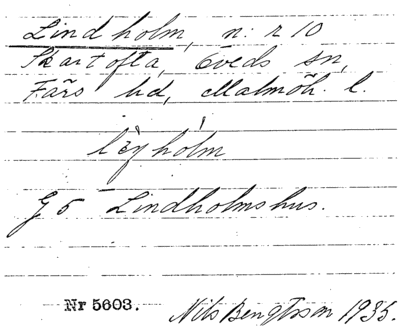 Lindholm, n:r 10
Skartofta, Öveds sn,
Färs hd, Malmöh. l.
G 5 Lindholmshus.
Nr 5603. Nils Bengtsson 1935.